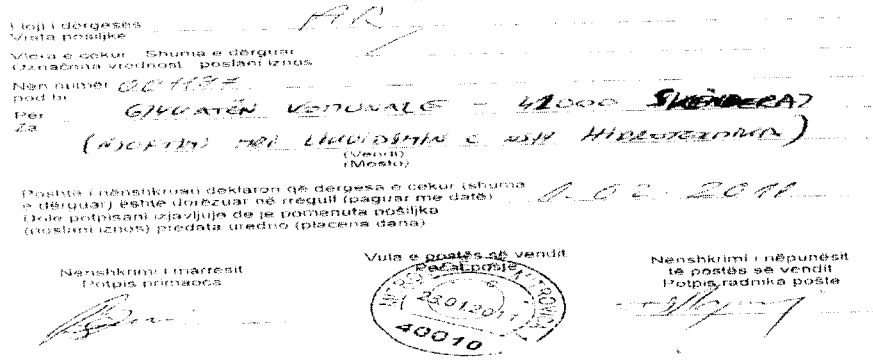 Lloji i dërgesës AR
Vrsta pošiljke
Vlera e cekur Shuma e dërguar
Označnna vrednost poslani iznos
Nën numër 001137
pod br.
Për GJYKATËN KOMUNALE - 41000 SKËNDERAJ
Za
(NJOFTIMI MBI LIKUIDIMIN E NSH HIDROTEKNIKA)
(Vendi)
(Mosto)
Poshtë i nënshkruari deklaron që dërgesa e cekur (shuma
e dërguar) është dorëzuar në rregull (paguar me datë) 1.02.2011
Dole potpisani izjavljuje da je pomenuta pošiljka
(poslani iznos) predata uredno (placena dana)
Nënshkrimi i marrësit
Potpis primaoca
Vula e postës së vendit
Pečat pošte
MITROVICA
23.01.2011
40010
Nënshkrimi i nëpunësit
të postës së vendit
Potpis radnika pošte